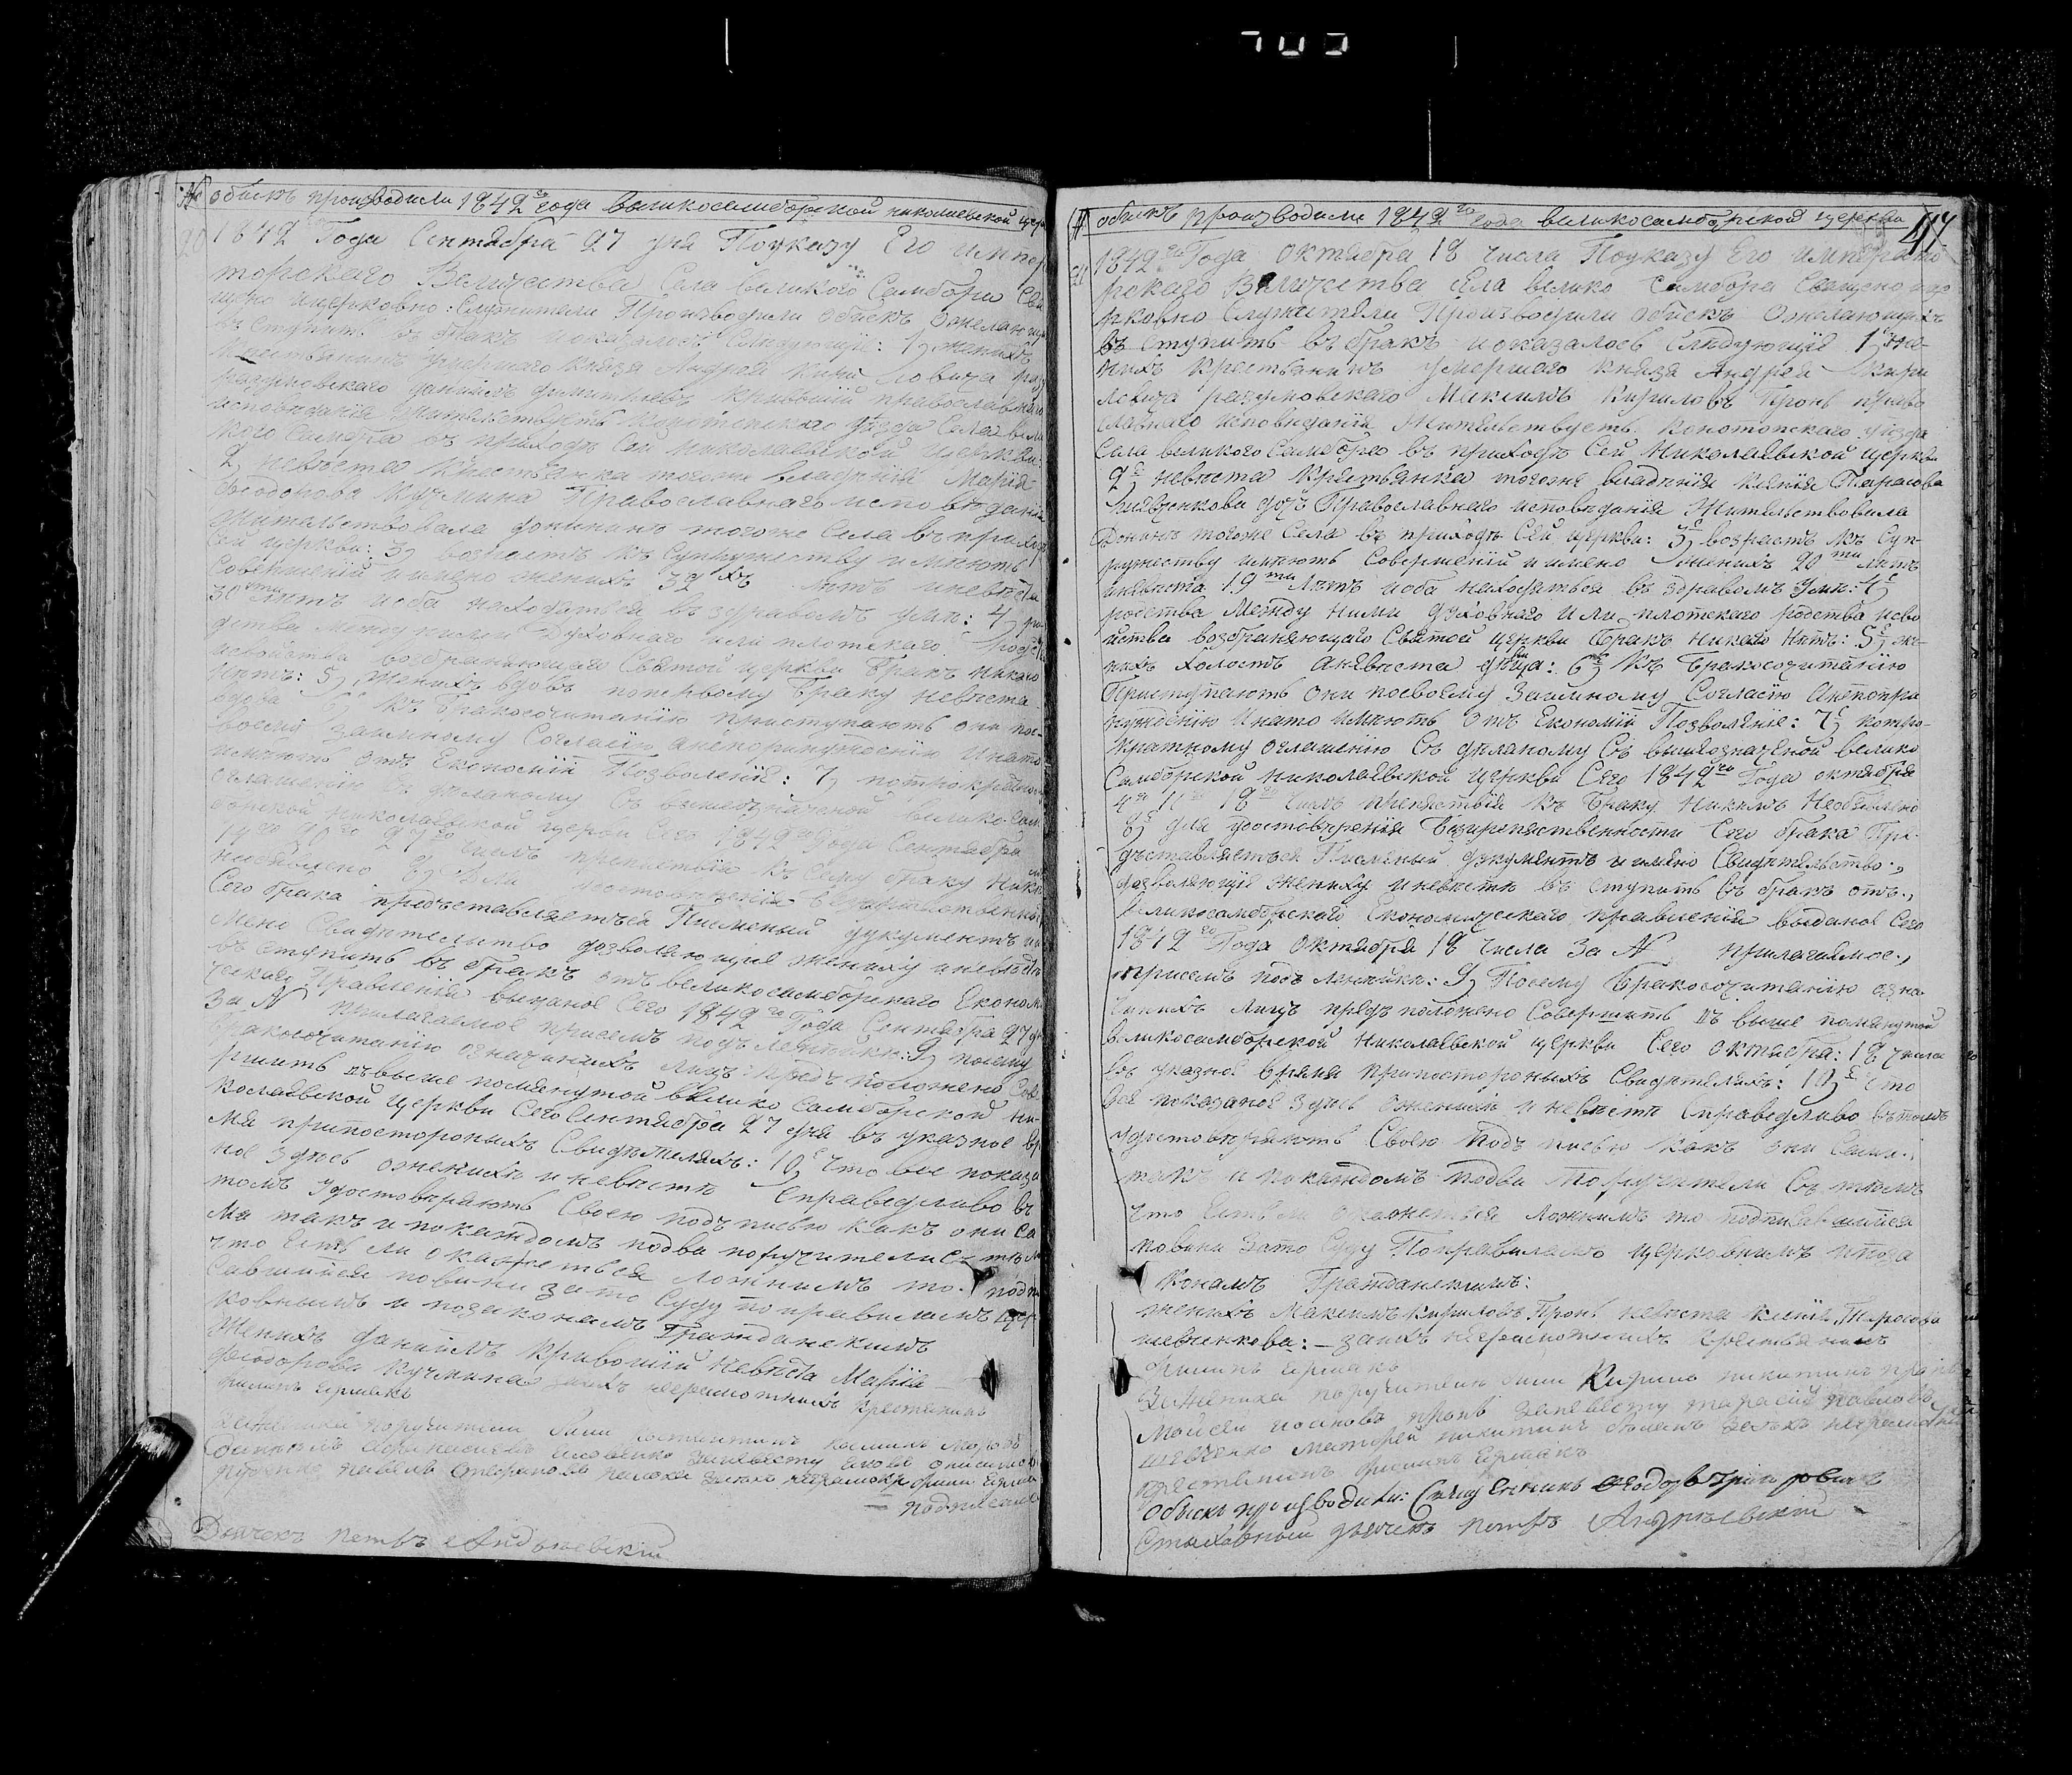 № обыскъ производили 1842го года великосамборской николаевской церк
20 1842 Года Сентября 27 дня Поуказу Его импера
торскаго Величества Села великого Самбора Свя
щено ицерковно: Служители Производили обыскъ Ожелающихъ
въ Ступить въ бракъ иоказалось Слъдующїе: 1, женихъ
Крестьянинъ умершаго князя Андрея Кирилловича раз
умовскаго данїилъ димитрїевъ Кривошїй православнаго
исповъданїя жительствуетъ Конотопского уъзда Села вели
кого Самбора въ приходъ Сей николаевской церкви:
2, невъста Крестьянка тогоже владънїя Марїя
Феодорова Кучмина Православнаго исповъданїя
жительствовала донинъ тогоже Села въ приходъ
Сей церкви: 3, возрастъ къ Супружеству имъютъ
Совершенїй имено женихъ 32хъ лътъ иневъста
30ти лътъ иоба находяться въ здравомъ умъ: 4, ро
дства между ними Духовнаго или плотскаго родства
исвойства возбраняющаго Святой церкви Бракъ никаго
нътъ: 5, женихъ вдовъ поперьвому Браку невъста
вдова 6, Къ Бракосочитанїю приступаютъ они пос-
воему заимному Согласїю анепопринужденїю инато
имъютъ отъ Економїи Позволенїе: 7, потрократному
оглашенїю Съ дъланому Съ вышеозначеной велико Сам
борской николаевской церкви Сего 1842го Года Сентября
14го 20го 27го Числъ препятствїя къ Сему браку никъмъ
необъявлено 8, Для удостовъренїя безпрепятственности
Сего брака предъставляеться Писменый документъ и
мено Свидътелство дозволяющїе жениху иневъстъ
въ ступить въ бракъ отъ великосамборскаго Економ
ическаго Правленїя выданое Сего 1842го Года Сентября 27
За № прилагаемое присемъ подъ лентки: 9, посему
бракосочитанїю означинихъ лицъ предъ положено Сове
ршить въвыше помянутой велико Самборской ни-
колаевской Церкви Сего Сентября 27 дня въ указное вре
мя припостороныхъ Свидътеляхъ: 10, Что все показа
ное здъсь оженихъ иневъстъ Справедливо въ
томъ удостовъряютъ Своею подъ писью какъ они са
ми такъ и покаждомъ подва поручители Съ тъмъ
что Есть ли окажеться ложнимъ то подпи
савшїися повини зато Суду поправиламъ цер
ковнымъ и позаконамъ Гражданскимъ
женихъ Данїилъ Кривошїй Невъста Марїя
Феодорова Кучмина заихъ неграмотнихъ Крестянинъ
филипъ ермакъ
поручители били
неграмот филип ермакъ
подписался
Дьячекъ петръ Андрїевскїй
№ обыскъ производили 1842го года великосамборской церкви 44
21 1842го Года октября 18 числа Поуказу Его императо
рскаго Величества Села велико Самбора Священо ице
рковно Служители Производили обыскъ Ожелающихъ
въ Ступить въ бракъ иоказалось Слъдующїе 1, же-
нихъ Крестьянинъ умершаго князя Андрея Кири
ловича разумовскаго Максимъ Кириловъ Пронь право
славнаго исповъданїя Жительствуетъ Конотопскаго уъзда
Села великого Самбора въ приходъ Сей Николаевской церкви
2е невъста Крестьянка тогоже владънїя Ксенїя Тарасова
Шевченкова дочъ Православнаго исповъданїя Жительствовала
Донинъ тогоже Села въ приходъ Сей церкви: 3е, возрастъ къ Суп-
ружеству имъютъ Совершенїй имено женихъ 20ти лътъ
иневъста 19ти лътъ иоба находяться въ здравомъ умъ: 4е,
родства между ними духовнаго или плотскаго родства исво
йства возбраняющаго Святой церкви Бракъ никаго Нътъ: 5е, же-
нихъ холостъ аневъста дъвица: 6е, къ Бракосочитанїю
Приступаютъ они посвоему Заимному Согласїю анепопри
нужденїю инато имъютъ отъ Економїи Позволенїе: 7е, потро-
кратному оглашенїю Съ дъланому Съ вышеозначеной велико
Самборской николаевской церкви Сего 1842го Года октября
4го 11го 18го Числъ препятствїя къ Браку Никъмъ Необъявлено
8е, для удостовъренїя безпрепятственности Сего брака Пре-
дъставляеться Писменый документъ имяно Свидътельство,
дозволяющїе жениху иневъстъ въ ступить въ бракъ отъ,
великосамборскаго Економическаго правленїя выданое Сего
1842го Года Октября 18 числа За № прилагаемое,
присемъ подъ лентки: 9, Посему Бракосочитанїю озна
чинихъ лицъ предъ положено Совершить въ выше помянутой
великосамборской Николаевской церкви Сего октября: 18 числа
въ указное время припостороныхъ Свидътеляхъ: 10, Что
все показаное здъсь оженихъ и невъстъ Справедливо въ томъ
удостовъряютъ Своею подъ писью какъ они Сами,
такъ и покаждомъ подва поручители Съ тъмъ
что Есть ли окажеться ложнимъ то подписавшїися
повини зато Суду Поправиламъ церковнымъ ипоза
конамъ Гражданскимъ:
женихъ Максимъ Кириловъ Пронь невъста ксенїя Тарасова
шевченкова: — заихъ неграмотныхъ крестьянинъ
филипъ ермакъ
Зажениха поручители били Кирилъ никитинъ пронь
Мойсей пронь заневъсту тарасїй павловъ
шевченко Матфей никитинъ заихъ неграмотныхъ
крестянинъ филипъ ермакъ
Обыскъ производили: Священникъ Феодоръ Григоровичъ
Стихаревый дьячекъ петръ Андрїевскїй